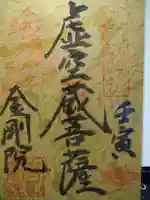 壬寅
虚空蔵菩薩
金剛院